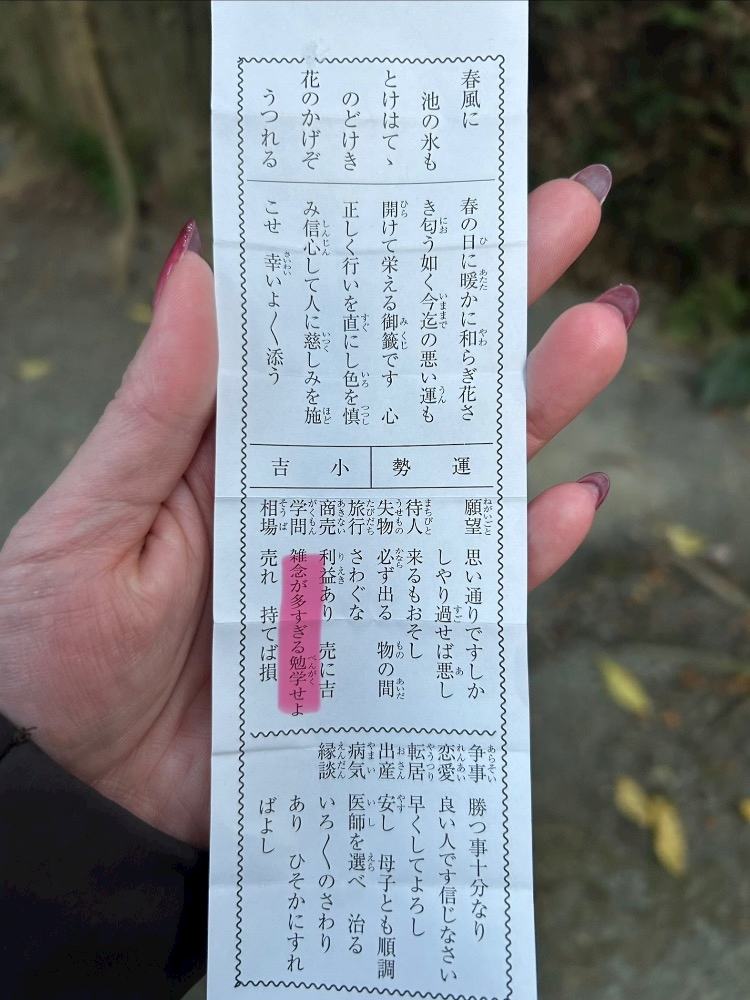 春風に
池の氷も
とけはてゝ
のどけき
花のかげぞ
うつれる
春の日に暖かに和らぎ花さ
き匂う如く今迄の悪い運も
開けて栄える御籤です 心
正しく行いを直にし色を慎
み信心して人に慈しみを施
こせ 幸いよ〱添う
運勢
小吉
願望 思い通りですしか
しやり過せば悪し
待人 来るもおそし
失物 必ず出る 物の間
旅行 さわぐな
商売 利益あり 売に吉
学問 雑念が多すぎる勉学せよ
相場 売れ 持てば損
争事 勝つ事十分なり
恋愛 良い人です信じなさい
転居 早くしてよろし
出産 安し 母子とも順調
病気 医師を選べ 治る
縁談 いろ〱のさわり
あり ひそかにすれ
ばよし